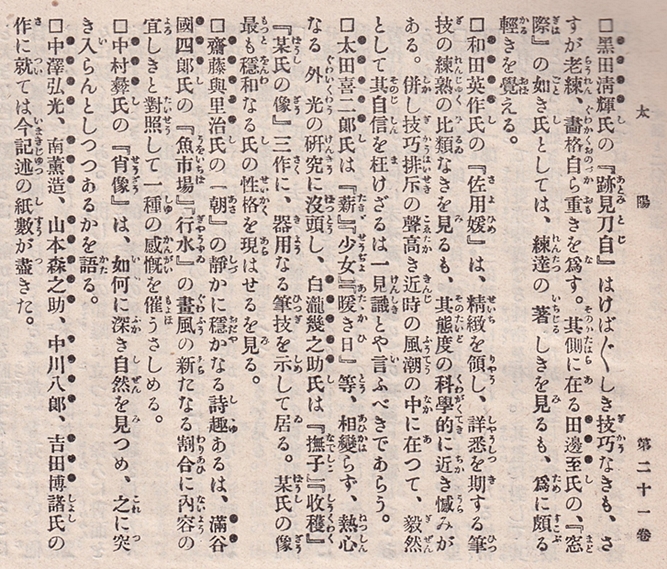 太陽　第二十一卷
□黑田淸輝氏の『跡見刀自』はけば〲しき技巧なきも、さ
すが老練、畵格自ら重きを爲す。其側に在る田邊至氏の、『窓
際』の如き氏としては、練達の著しきを見るも、爲に頗る
輕きを覺える。
□和田英作氏の『佐用媛』は、精緻を領し、詳悉を期する筆
技の練熟の比類なきを見るも、其態度の科學的に近き憾みが
ある。併し技巧排斥の聲高き近時の風潮の中に在つて、毅然
として其自信を枉けざるは一見識とや言ふべきであらう。
□太田喜二郎氏は『薪』『少女』『暖き日』等、相變らず、熱心
なる 外 光の硏究に沒頭し、白瀧幾之助氏は『撫子』『收穫』
『某氏の像』三作に、器用なる筆技を示して居る。某氏の像
最も穩和なる氏の性格を現はせるを見る。
□齋藤與里治氏の『朝』の靜かに穩かなる詩趣あるは、滿谷
國四郎氏の『魚市場』『行水』の畫風の新たなる割合に內容の
宜しきと對照して一種の感慨を催うさしめる。
□中村彜氏の『肖像』は、如何に深き自然を見つめ、之に突
き入らんとしつつあるかを語る。
□中澤弘光、南薰造、山本森之助、中川八郎、吉田博諸氏の
作に就ては今記述の紙數が盡きた。